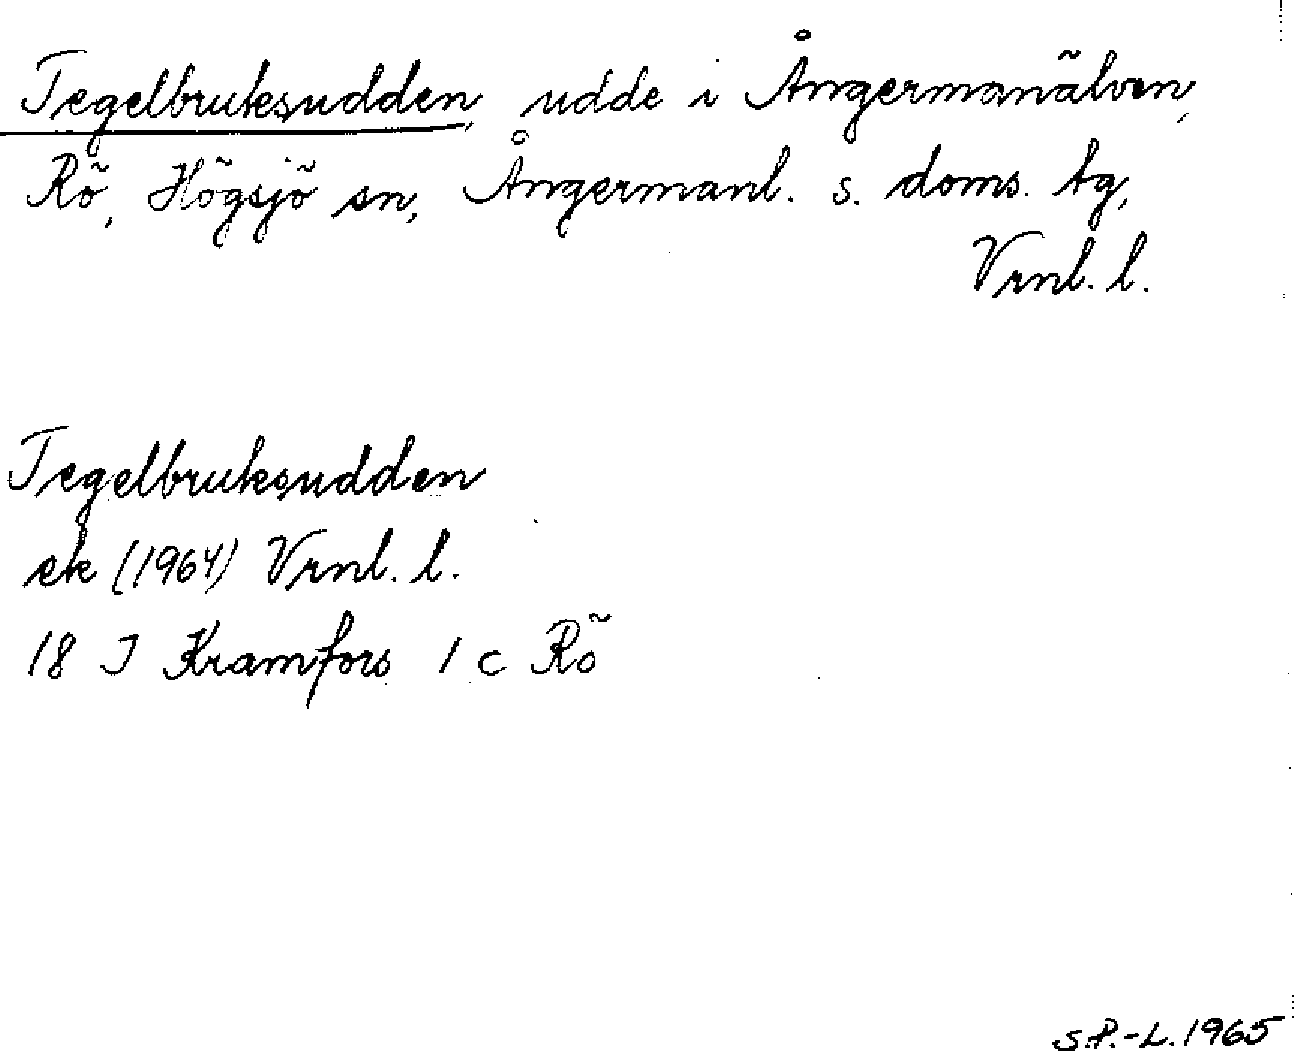 Tegelbruksudden, udde i Ångermanälven,
Rö, Högsjö sn, Ångermanl. s. doms. tg,
Vrnl. l.
Tegelbruksudden
ek (1964) Vrnl. l.
18 J Kramfors 1 c Rö
S.P.-L. 1965